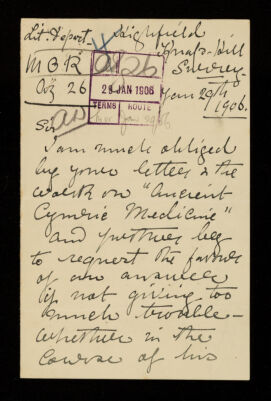 Lit. Dept. Highfield
Knats Hill
MBR Surrey
29 JAN 1906
26 Jan 29th
TERMS ROUTE 1906.
Sir
I am much obliged
by your letters & the
work on "Ancient
Cymric Medicine"
and further beg
to request the favour
of an answer
if not giving too
much trouble –
whether in the
course of his